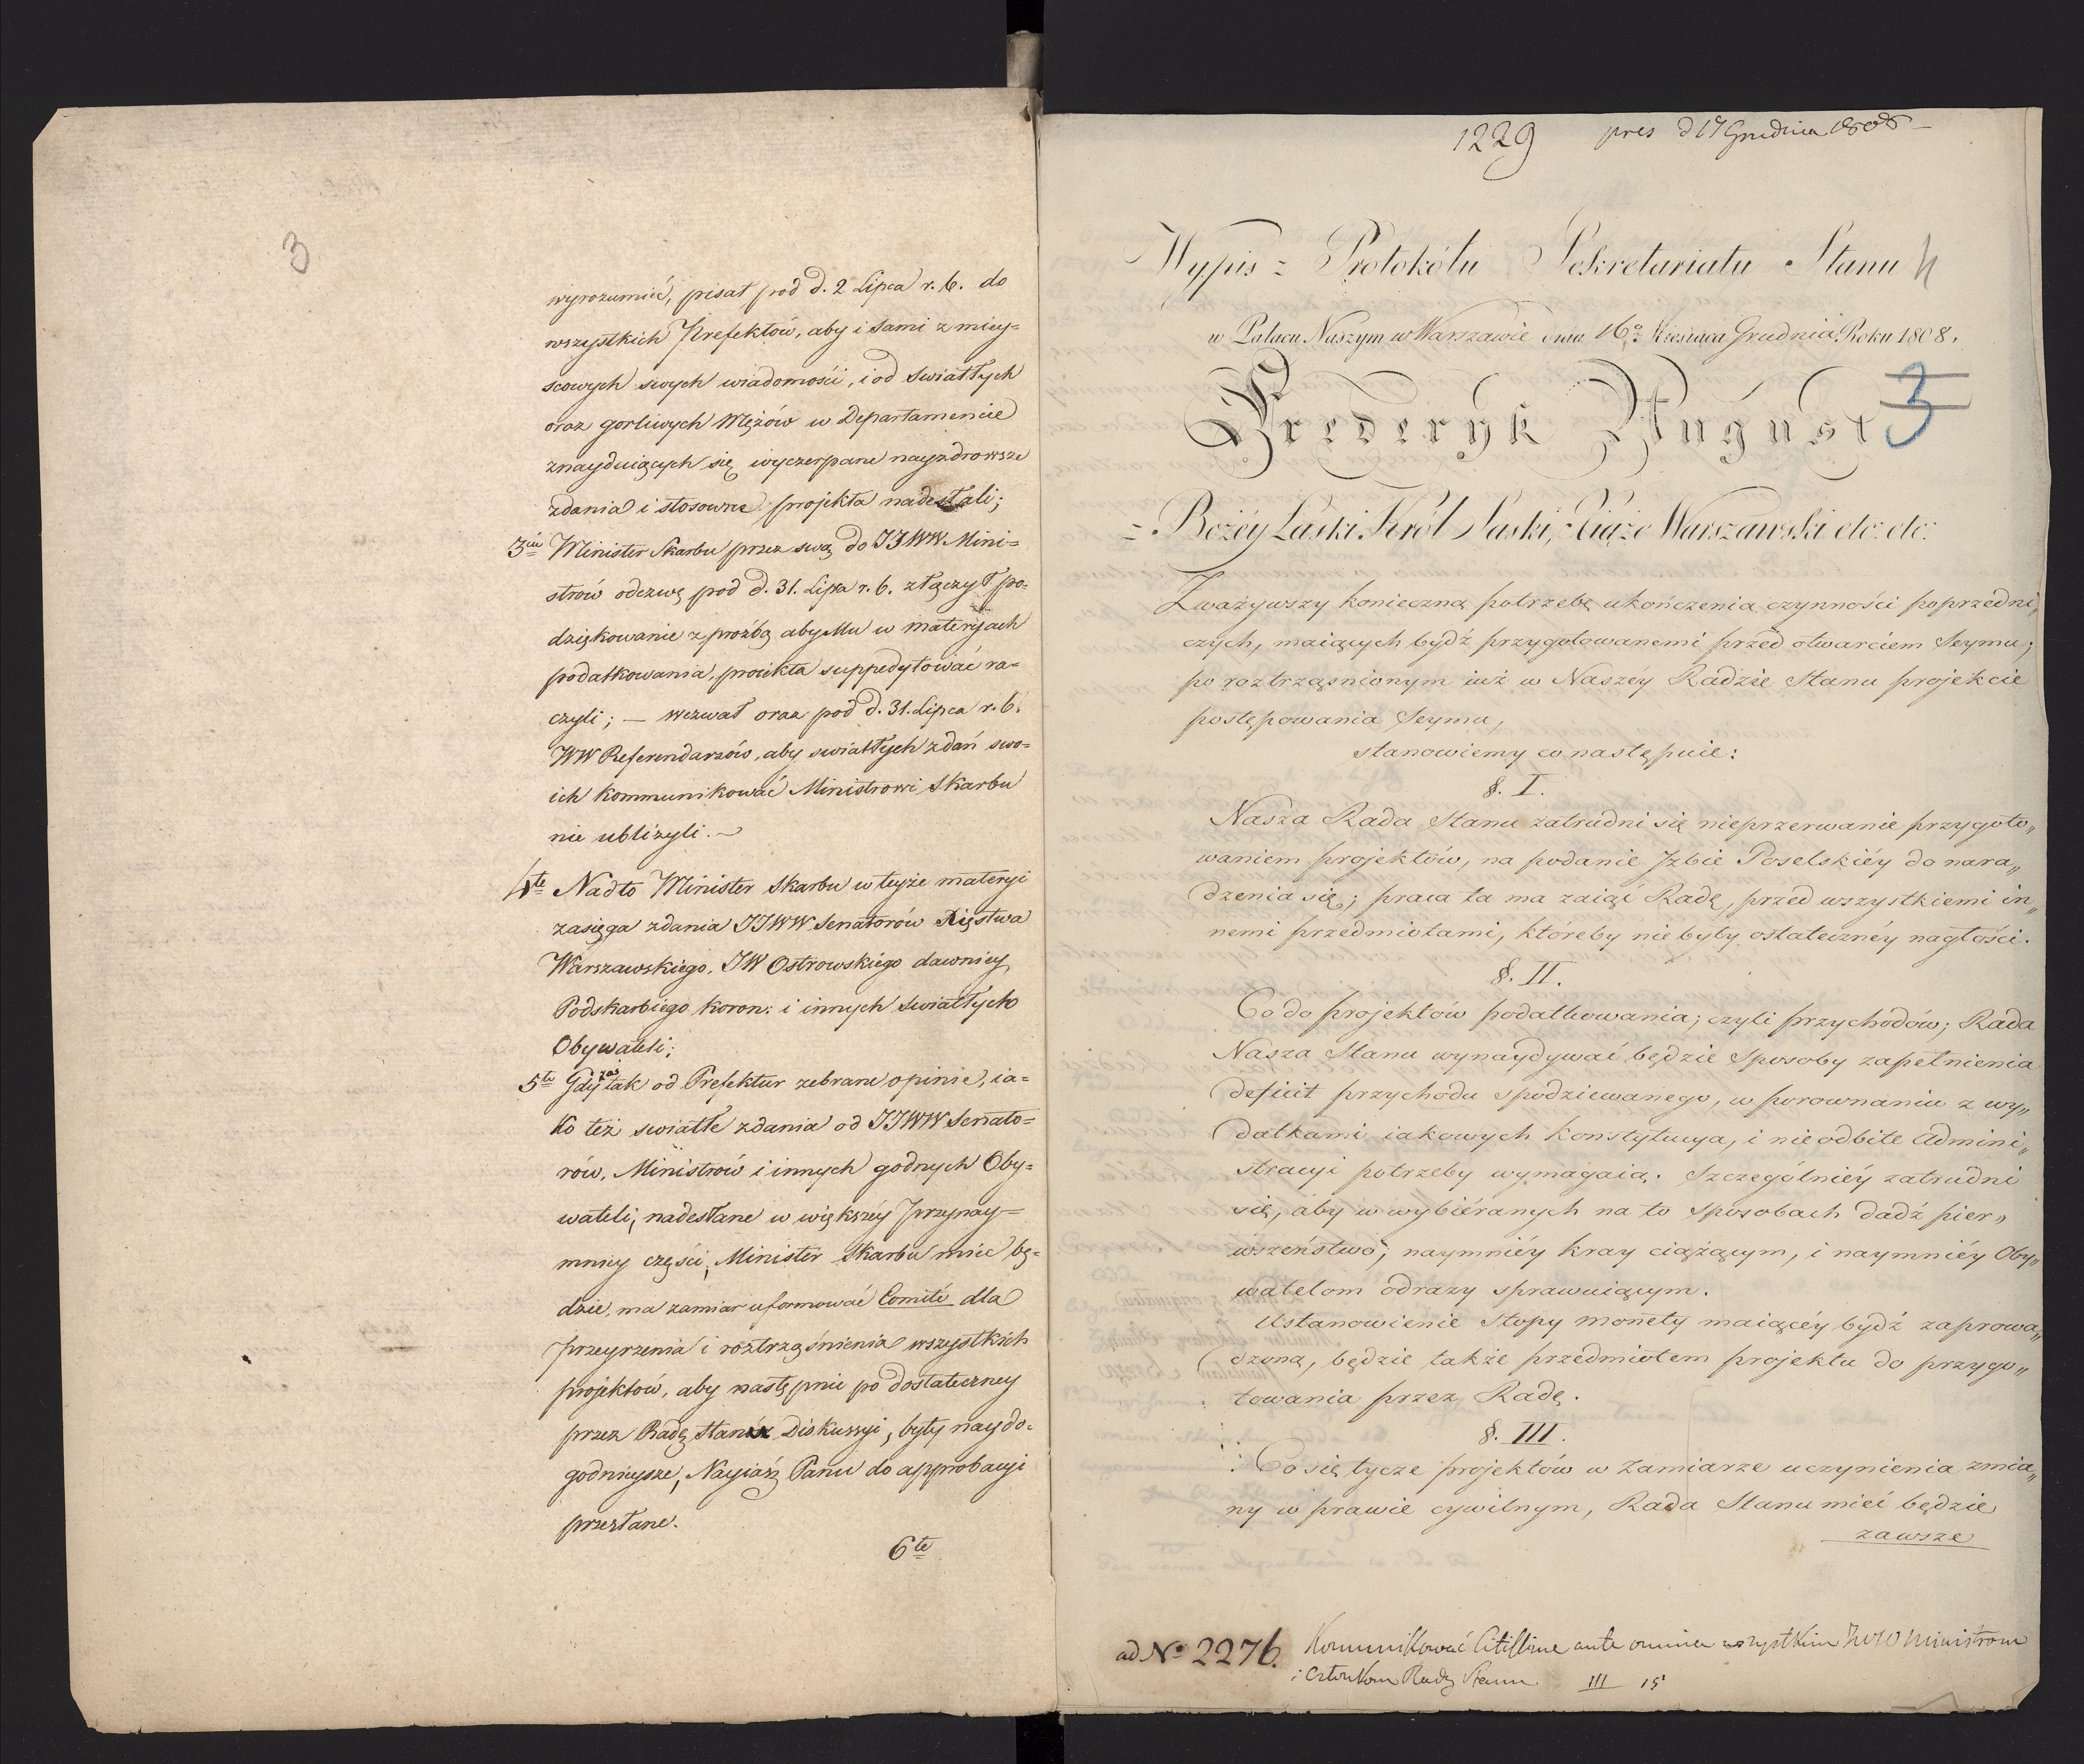 3
wyrozumieć, pisał pod d. 2 Lipca r. b. do
wszystkich Prefektów, aby i sami z miey=
scowych swych wiadomości, i od swiatłych
oraz gorliwych Mężów w Departamencie
znayduiących się wyczerpane nayzdrowsze
zdania i stosowne projekta nadesłali;
3cie Minister Skarbu przez swą do JJWW Mini=
strów odezwę pod d. 31. Lipca r. b. złączył po=
dziękowanie z proźbą aby Mu w materyjach
podatkowania, proiekta suppedytować ra=
czyli; — wezwał oraz pod d. 31. Lipca r. b.
WW Referendarzów, aby swiatłych zdań swo=
ich kommunikować Ministrowi Skarbu
nie ubliżyli. ~
4te Nadto Minister Skarbu w teyże materyi
zasięga zdania JJWW Senatorów Xięstwa
Warszawskiego, JW Ostrowskiego dawniey
Podskarbiego koron: i innych swiatłych
Obywateli;
5te Gdy zaś tak od Prefektur zebrane opinie, ia=
ko też swiatłe zdania od JJWW Senato=
rów, Ministrów i innych godnych Oby=
wateli, nadesłane w większey przynay=
mniey części, Minister Skarbu mieć bę=
dzie, ma zamiar uformować Comité dla
przeyrzenia i roztrząśnienia wszystkich
projektów, aby następnie po dostateczney
przez Radę Stanu Diskussyi, były naydo=
godnieysze, Nayiaś: Panu do approbacyi
przesłane.
6te
1229 pres d 17 Grudnia 1808 –
Wypis z Protokółu Sekretariatu Stanu 4
w Pałacu Naszym w Warszawie dnia 16o Miesiąca Grudnia Roku 1808.
Frederyk August 3
z Bożéy Łaski Król Saski, Xiąże Warszawski etc: etc:
Zważywszy konieczną potrzebę ukończenia czynności poprzedni„
czych, maiących bydź przygotowanemi przed otwarciem Seymu;
po roztrząsnionym iuż w Naszey Radzie Stanu projekcie
postępowania Seymu,
stanowiemy co następuie:
§. I.
Nasza Rada Stanu zatrudni się nieprzerwanie przygoto„
waniem projektów, na podanie Jzbie Poselskiéy do nara„
dzenia się; praca ta ma zaiąć Radę, przed wszystkiemi in„
nemi przedmiotami, ktoreby nie były ostateczney nagłości.
§. II.
Co do projektów podatkowania; czyli przychodów; Rada
Nasza Stanu wynaydywać będzie sposoby zapełnienia
deficit przychodu spodziewanego, w porownaniu z wy„
datkami iakowych konstytucya, i nieodbite Admini„
stracyi potrzeby wymagaią. Szczególniéy zatrudni
się, aby w wybiéranych na to sposobach dadź pier„
wszeństwo, naymniéy kray ciążącym, i naymniéy Oby„
watelom odrazy sprawuiącym.
Ustanowienie stopy monety maiącéy bydź zaprowa„
dzoną, będzie także przedmiotem projektu do przygo„
towania przez Radę.
§. III.
Co się tycze projektów w zamiarze uczynienia zmia„
ny w prawie cywilnym, Rada Stanu mieć będzie
zawsze
ad No 2276. Kommunikować Citissime ante omnia wszystkim JWW Ministrom
i Członkom Rady Stanu III 15